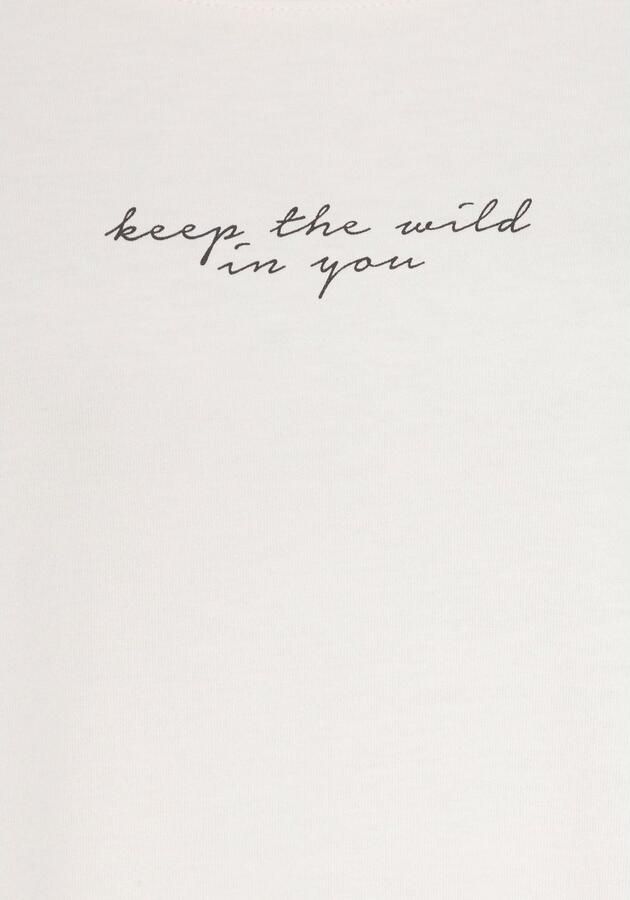 keep the wild
in you